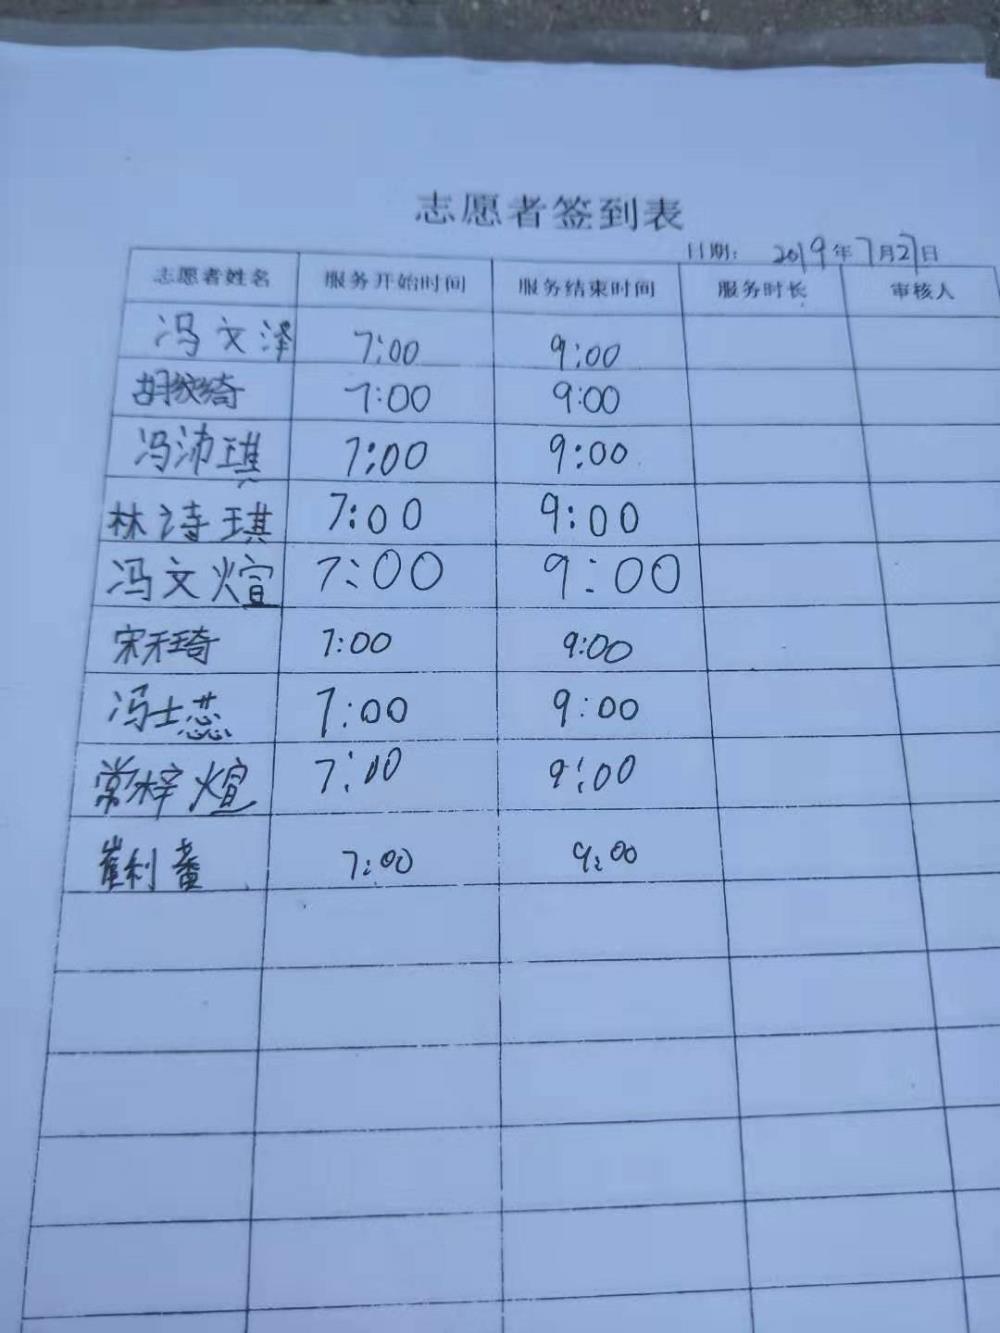 志愿者签到表
日期： 2019年7月27日
志愿者姓名 服务开始时间 服务结束时间 服务时长 审核人
冯文泽 7:00 9:00
胡纹绮 7:00 9:00
冯沛琪 7:00 9:00
林诗琪 7:00 9:00
冯文煊 7:00 9:00
宋天琦 7:00 9:00
冯士蕊 7:00 9:00
常梓煊 7:00 9:00
崔利 7:00 9:00